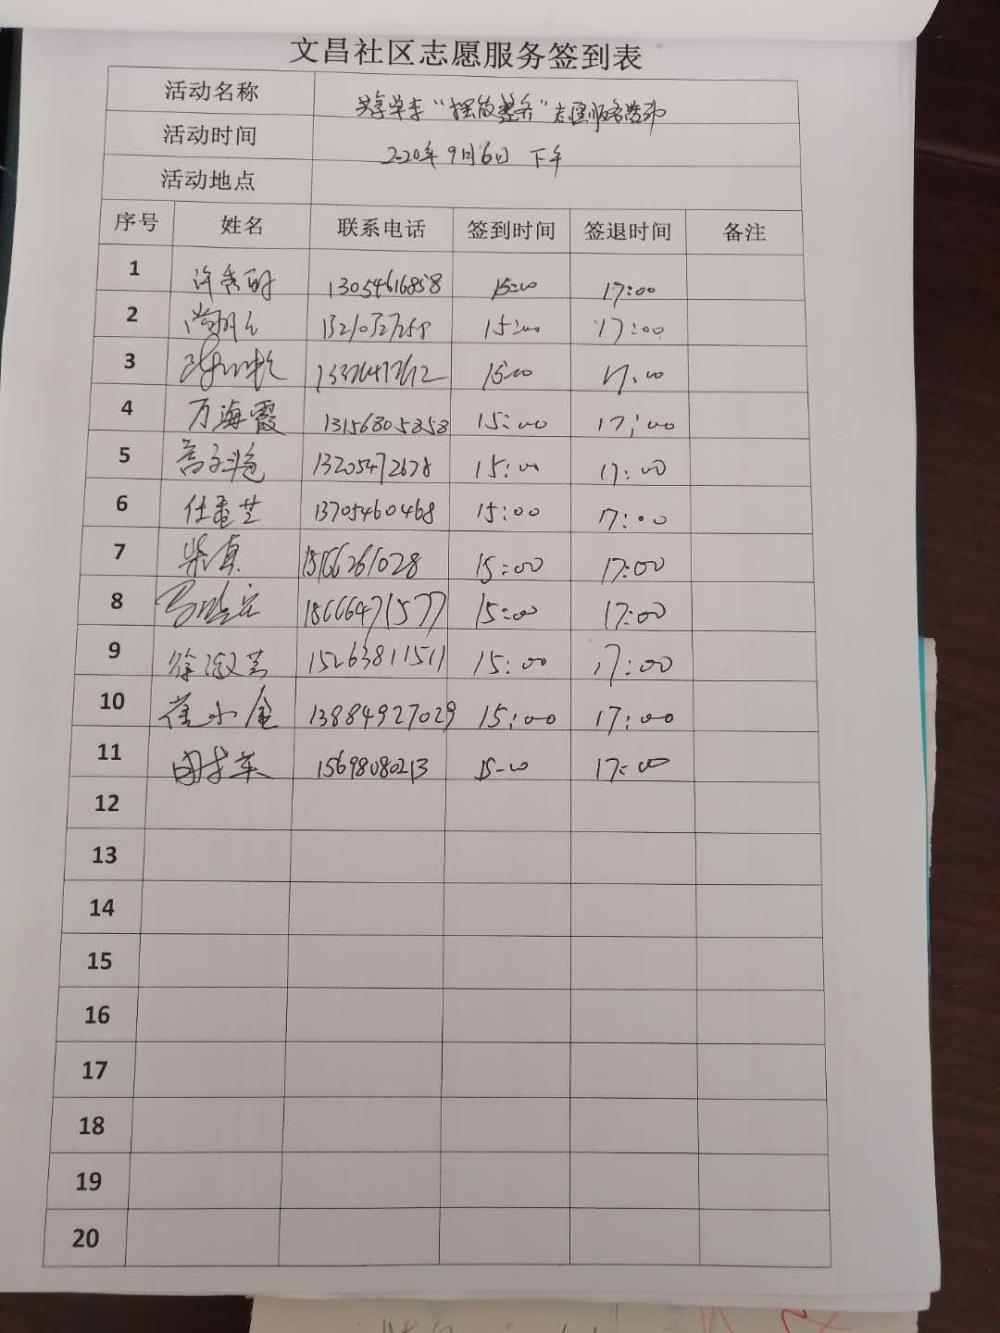 文昌社区志愿服务签到表
活动名称 共享单车“摆放整齐”志愿服务活动
活动时间 2020年9月6日 下午
活动地点
序号 姓名 联系电话 签到时间 签退时间 备注
1 13054616858 15:00 17:00
2 15:00 17:00
3 15:00 17:00
4 万海霞 13156805858 15:00 17:00
5 13205472678 15:00 17:00
6 13705460468 15:00 17:00
7 柴真 15:00 17:00
8 18666471577 15:00 17:00
9 15263811511 15:00 17:00
10 崔小金 13884927029 15:00 17:00
11 15698080213 15-00 17:00
12
13
14
15
16
17
18
19
20